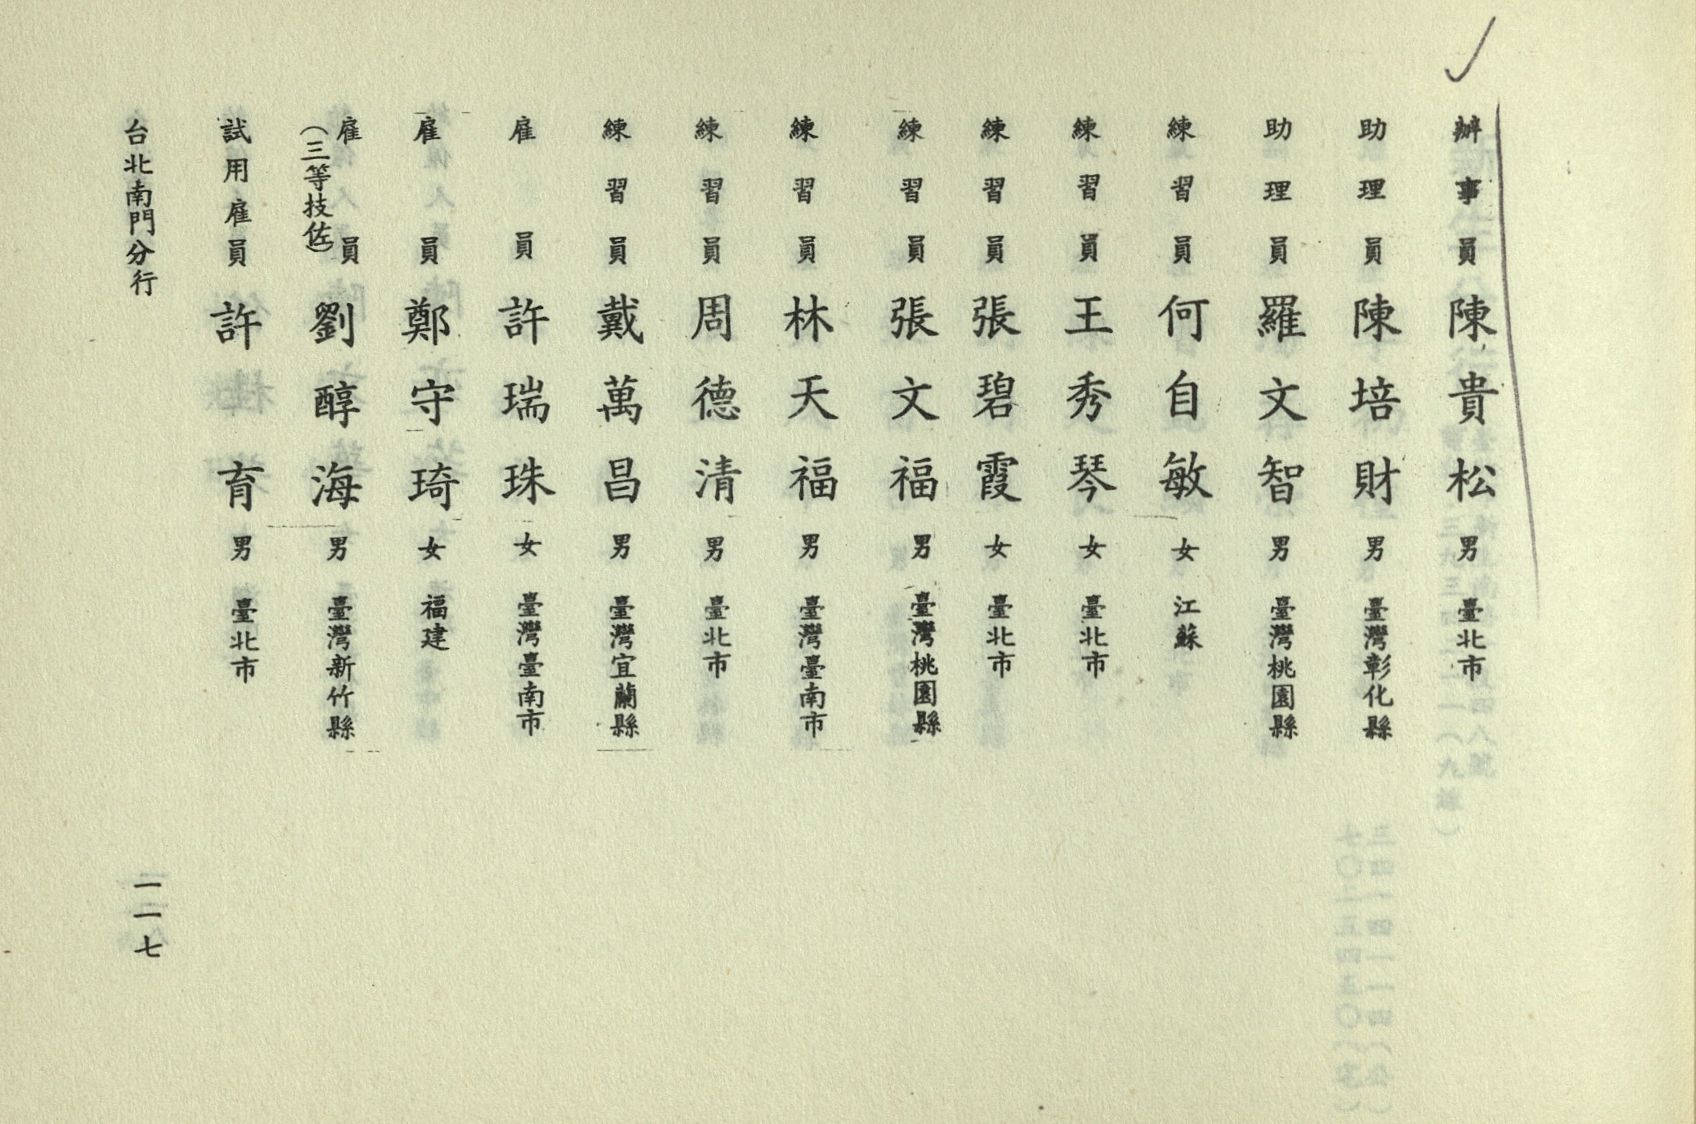 辦事員陳貴松男臺北市
助理員陳培財男臺灣彰化縣
助理員羅文智男臺灣桃園縣
練習員何自敏女江蘇
練習員王秀琴女臺北市
練習員張碧霞女臺北市
練習員張文福男臺灣桃園縣
練習員林天福男臺灣臺南市
練習員周德清男臺北市
練習員戴萬昌男臺灣宜蘭縣
雇員許瑞珠女臺灣臺南市
雇員鄭守琦女福建
雇員劉醇海男臺灣新竹縣
（三等技佐）
試用雇員許育男臺北市
台北南門分行
一一七